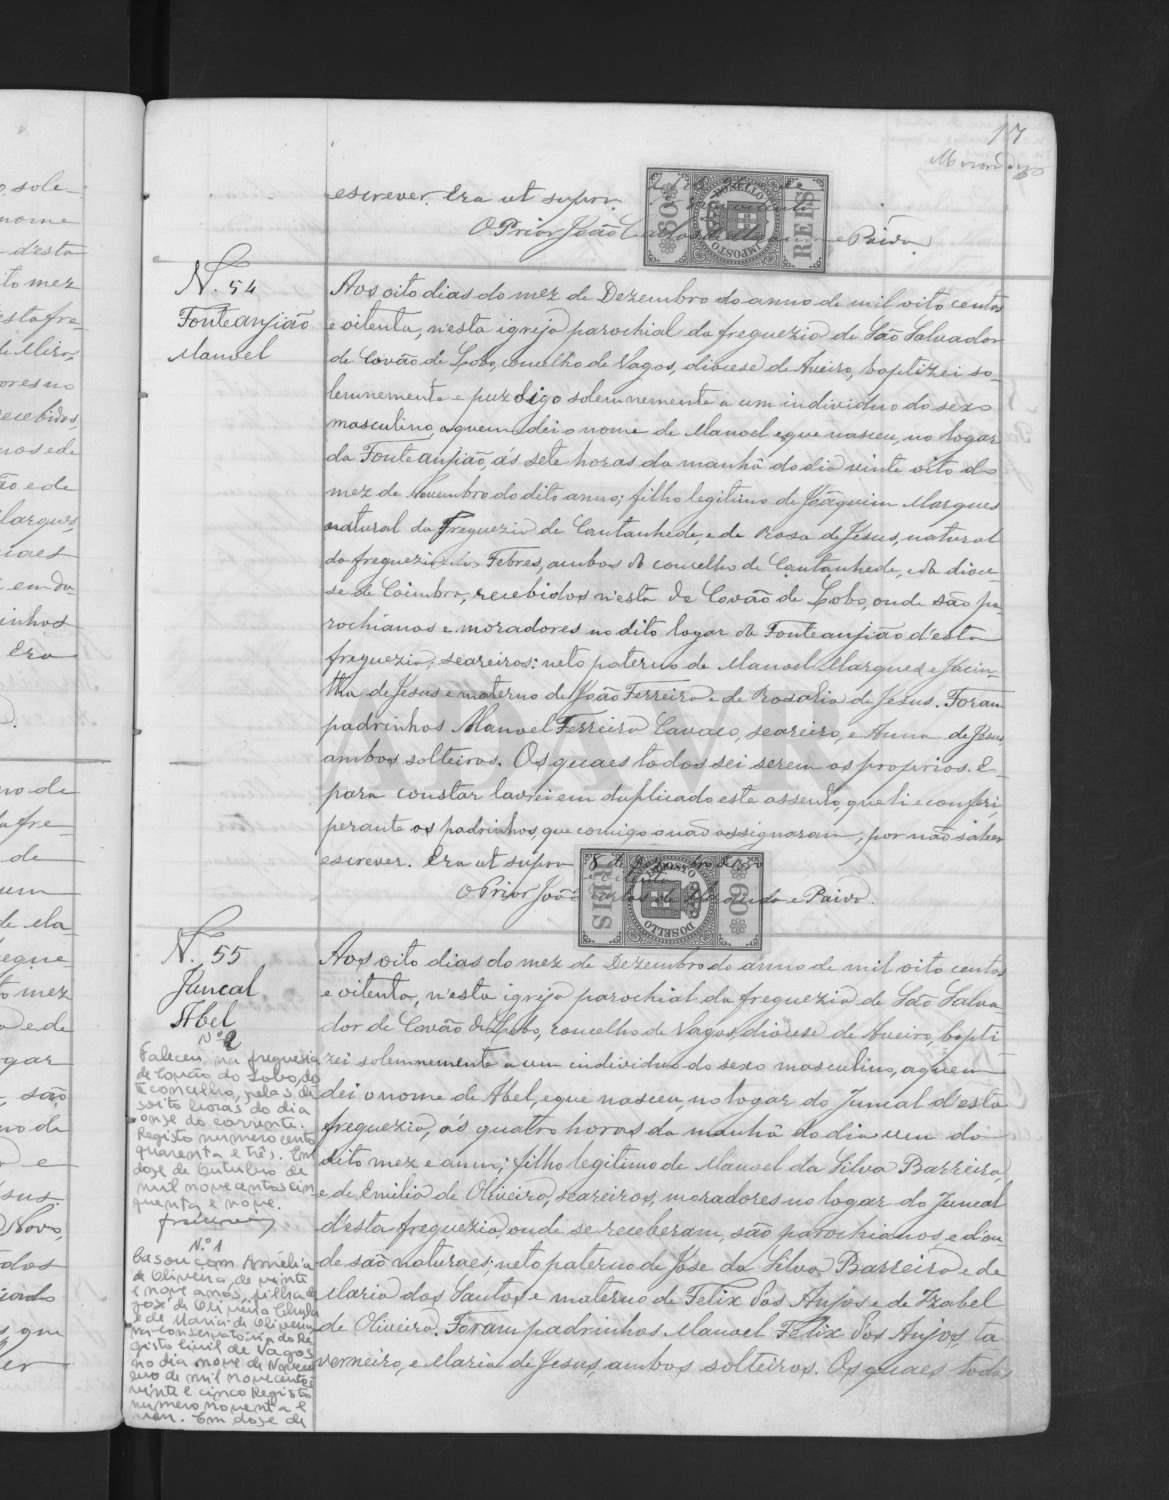 17
escrever. Era ut supra.
O Prior João Carlos de e Paiva.
80 REIS
IMPOSTO DO SELLO
N. 54
Fonteanjião
Manoel
Aos oito dias do mez de Dezembro do anno de mil oito centos
e oitenta, n'esta igreja parochial da freguezia de São Salvador
de Covão de Lobo, concelho de Vagos, diocese de Aveiro, baptizei so-
lemnemente e puz digo solemnemente a um individuo do sexo
masculino, aquem dei o nome de Manoel e que nasceu, no logar
da Fonteanjião, ás sete horas da manhã do dia vinte oito do
mez de Novembro do dito anno; filho legitimo de Joaquim Marques
natural da Freguezia de Cantanhede, e de Rosa de Jesus, natural
da freguezia de Febres, ambos do concelho de Cantanhede, e da dioce-
se de Coimbra, recebidos n'esta de Covão de Lobo, onde são pa-
rochianos e moradores no dito logar da Fonteanjião d'esta
freguezia, seareiros: neto paterno de Manoel Marques e Jacin-
tha de Jesus e materno de João Ferreira e de Rosalia de Jesus. Foram
padrinhos Manoel Ferreira Cavaco, seareiro, e Anna de Jesus,
ambos solteiros. Os quaes todos sei serem os proprios. E
para constar lavrei em duplicado este assento, que li e conferi
perante os padrinhos, que comigo o não assignaram, por não saber
escrever. Era ut supra 8 de Dezembro de 1880
e oitenta
O Prior João Carlos de Miranda e Paiva.
REIS 60
IMPOSTO DO SELLO
ADAVR
N. 55
Juncal
Abel
Aos oito dias do mez de Dezembro do anno de mil oito centos
e oitenta, n'esta igreja parochial da freguezia de São Salva-
dor de Covão de Lobo, concelho de Vagos, diocese de Aveiro, bapti-
zei solemnemente a um individuo do sexo masculino, aquem
dei o nome de Abel, e que nasceu, no logar do Juncal d'esta
freguezia, ás quatro horas da manhã do dia um do
dito mez e anno; filho legitimo de Manoel da Silva Barreiro,
e de Emilia de Oliveira, seareiros, moradores no logar do Juncal
d'esta freguezia, onde se receberam, são parochianos, e d'on-
de são naturaes; neto paterno de José da Silva Barreiro e de
Maria dos Santos e materno de Felix dos Anjos e de Izabel
de Oliveira. Foram padrinhos Manoel Felix dos Anjos, ta-
verneiro, e Maria de Jesus, ambos solteiros. Os quaes todos
Nº 2
Faleceu na freguesia
de Covão do Lobo, do
te concelho, pelas de
soito horas do dia
onze do corrente.
Registo numero cento
quarenta e três. Em
doze de Outubro de
mil novecentos cin
quenta e nove.
N.º 1
Casou com Amélia
de Oliveira, de vinte
e nove anos, filha de
José de Oliveira
e de Maria de Oliveira
na Conservatória do Re
gisto Civil de Vagos
no dia nove de Novem
bro de mil novecentos
vinte e cinco Registo
numero noventa e
um. Em doze de